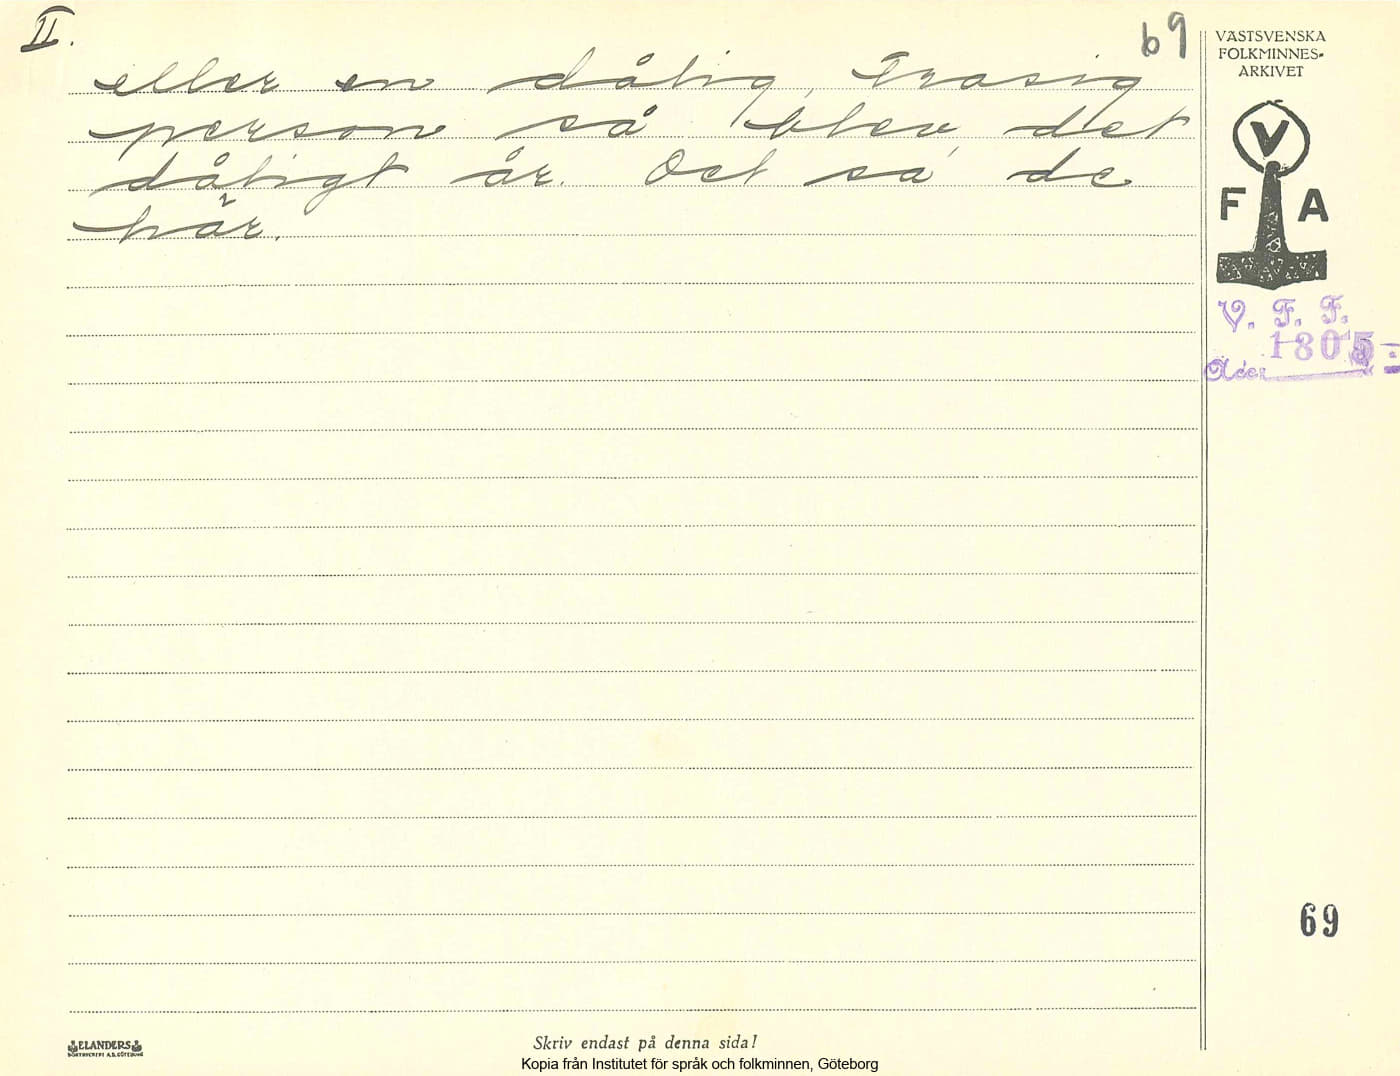 II.
69
eller en dålig, trasig
person så blev det
dåligt år. Det sa de
här.
VÄSTSVENSKA
FOLKMINNES-
ARKIVET
V
F A
V. F. F.
1805
Acc:
69
ELANDERS
BOKTRYCKERI A.B. GÖTEBORG
Skriv endast på denna sida!
Kopia från Institutet för språk och folkminnen, Göteborg